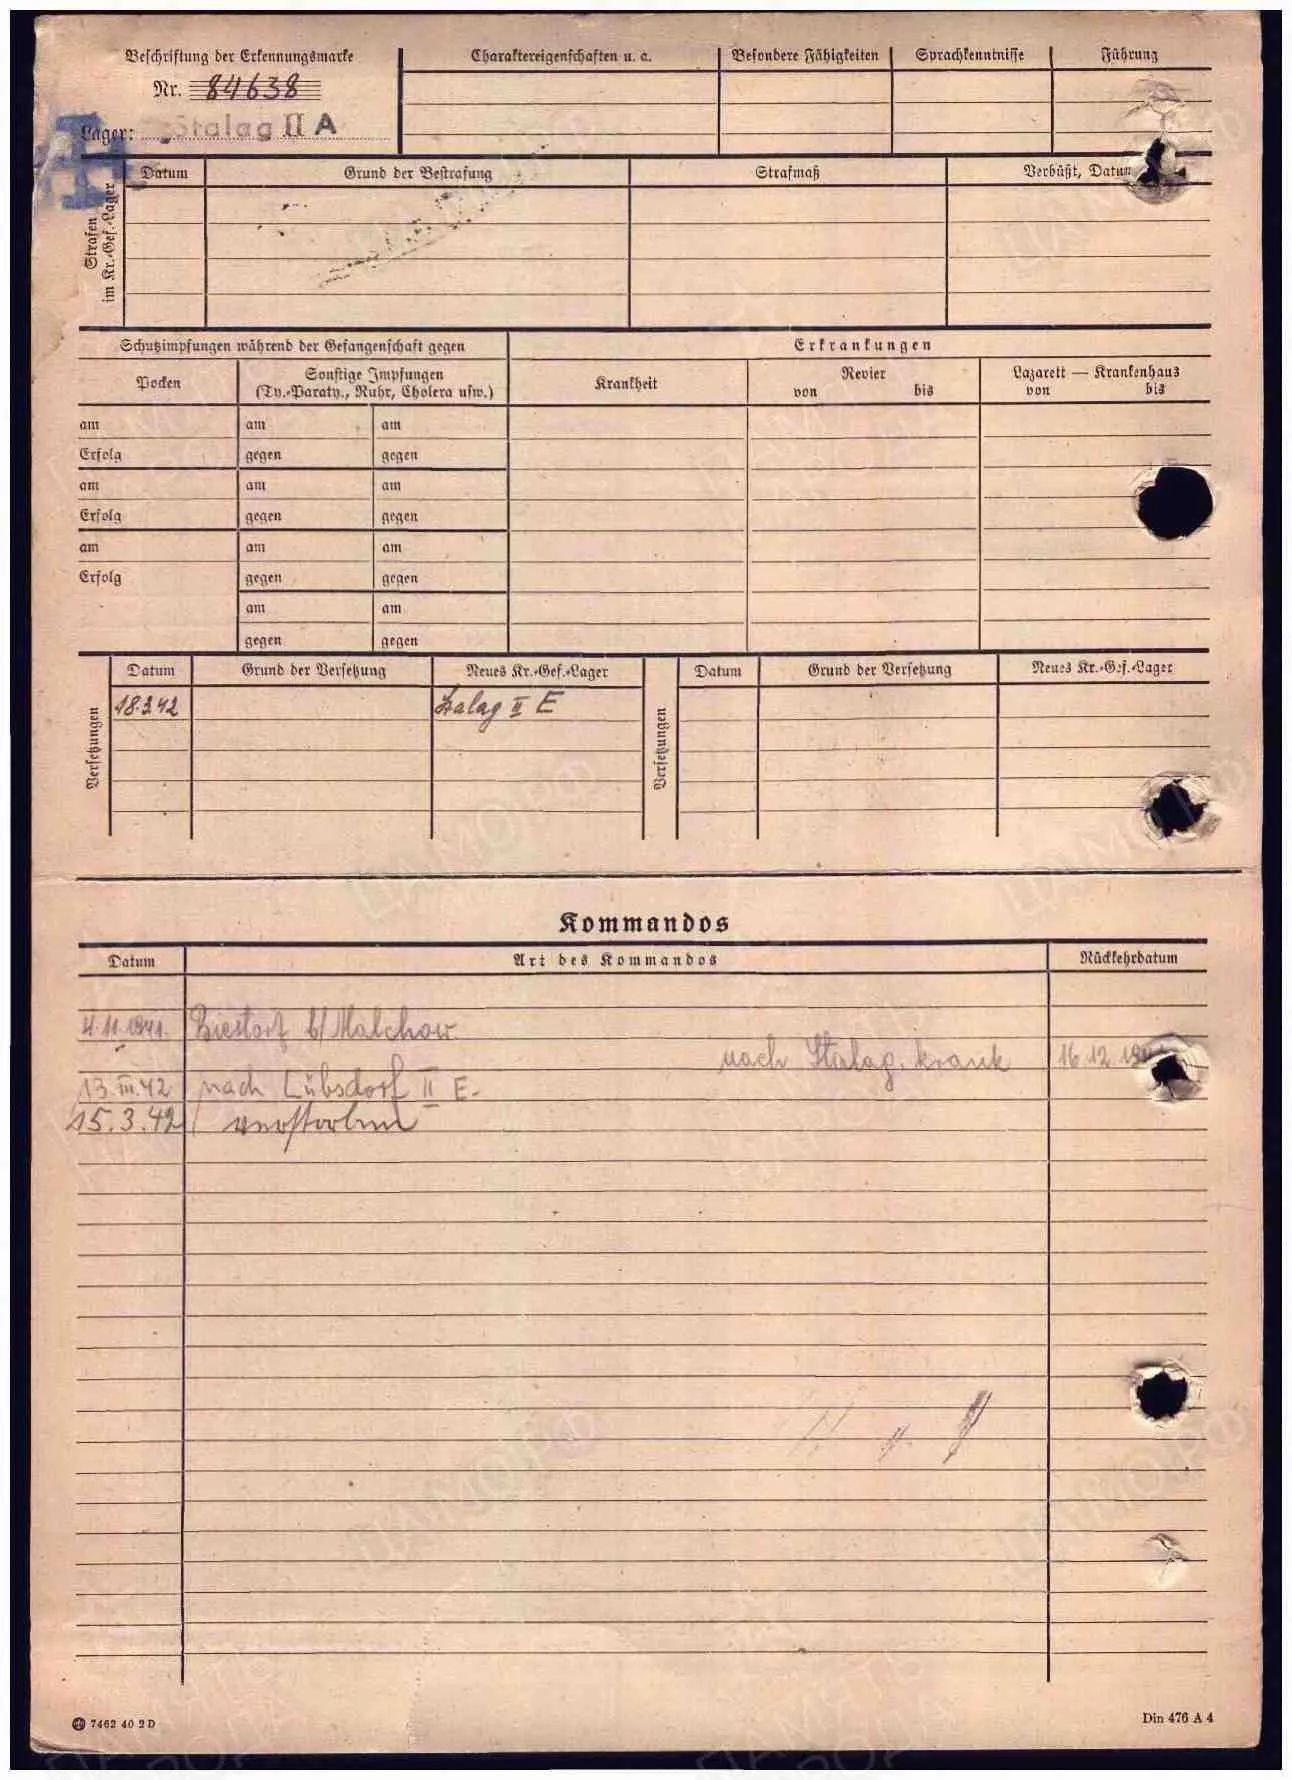 Beschriftung der Erkennungsmarke
Nr. 84638
Lager: Stalag II A
Charaktereigenschaften u. a.
Besondere Fähigkeiten
Sprachkenntnisse
Führung
Strafen im Kr.-Gef.-Lager
Datum
Grund der Bestrafung
Strafmaß
Verbüßt, Datum
Schutzimpfungen während der Gefangenschaft gegen
Erkrankungen
Pocken
Sonstige Impfungen
(Ty.-Paraty., Ruhr, Cholera usw.)
Krankheit
Revier
von bis
Lazarett — Krankenhaus
von bis
am am am
Erfolg gegen gegen
am am am
Erfolg gegen gegen
am am am
Erfolg gegen gegen
am am
gegen gegen
Versetzungen
Datum Grund der Versetzung Neues Kr.-Gef.-Lager
18.3.42 Stalag II E
Versetzungen
Datum Grund der Versetzung Neues Kr.-Gef.-Lager
Kommandos
Datum Art des Kommandos Rückkehrdatum
4.11.1941. Biestorf b/Malchow
nach Stalag. krank 16.12.1941
13.III.42 nach Lübsdorf II E.
15.3.42 verstorben
7462 40 2D
Din 476 A 4